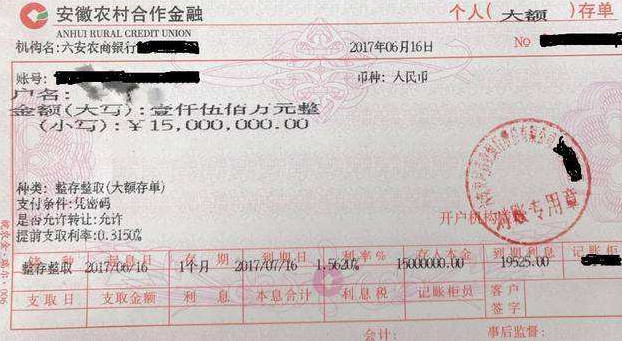 安徽农村合作金融
ANHUI RURAL CREDIT UNION
个人(大额)存单
机构名:六安农商银行
2017年06月16日
NO
账号:
币种:人民币
户名:
金额(大写):壹仟伍佰万元整
(小写):￥15,000,000.00
种类:整存整取(大额存单)
支付条件:凭密码
是否允许转让:允许
提前支取利率:0.3150%
开户机构
对账专用章
种 起息日 存 期 到期日 利率% 存入本金 到期利息 记账柜
整存整取 2017/06/16 1个月 2017/07/16 1.5620% 15000000.00 19525.00
支取日 支取金额 利 息 本息合计 利息税 记账柜员 客户签字
会计: 事后监督: